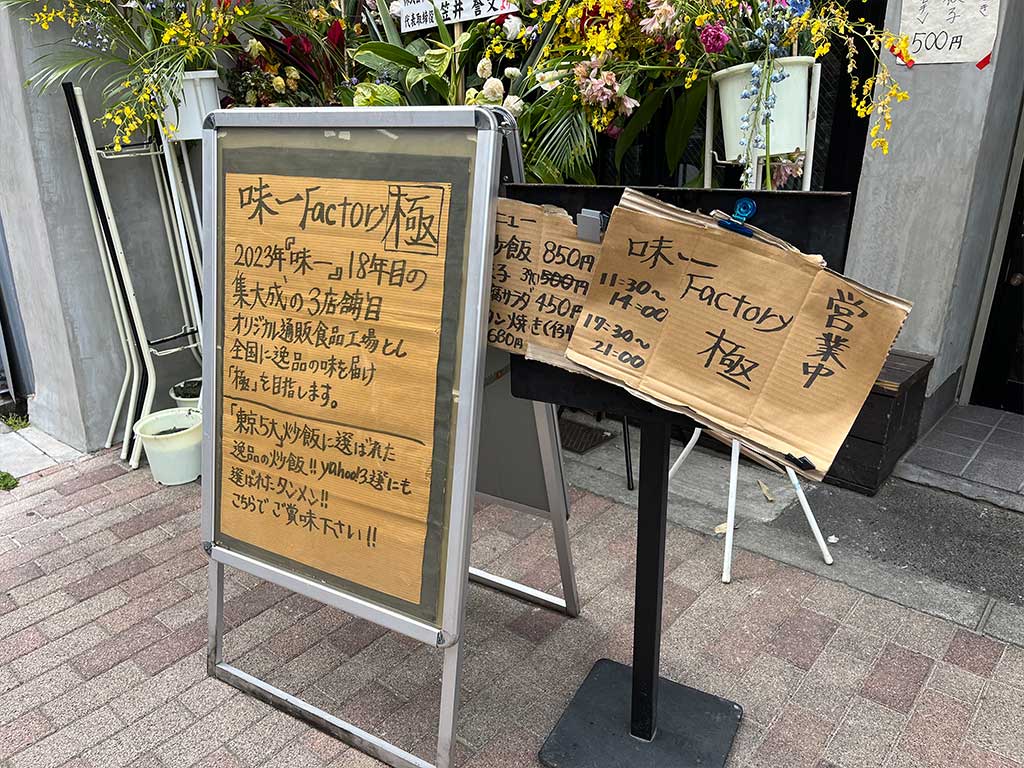 味一Factory極
2023年『味一』18年目の
集大成の3店舗目
オリジナル通販食品工場とし
全国に逸品の味を届け
「極」を目指します。
「東京5大」炒飯に選ばれた
逸品の炒飯!!yahoo!3選にも
選ばれたタンメン!!
こちらでご賞味下さい!!
代表取締役 笠井
ニュー
炒飯 850円
子 3個500円
腐サラダ 450円
タン焼き
680円
味一
Factory
極
営業中
11:30〜
14:00
17:30〜
21:00
500円